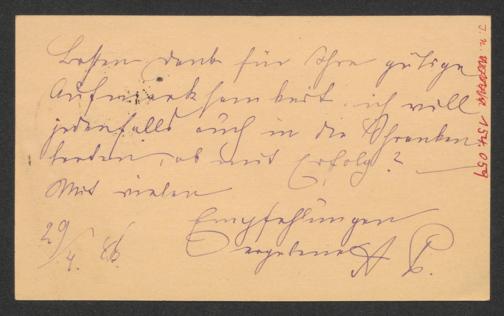 Besten Dank für Ihre gütige
Aufmerksamkeit. ich will
jedenfalls auch in die Schranken
treten, ob mit Erfolg? —
Mit vielen
Empfehlungen
ergebenst
29/4. 86.
J. N. 154.059